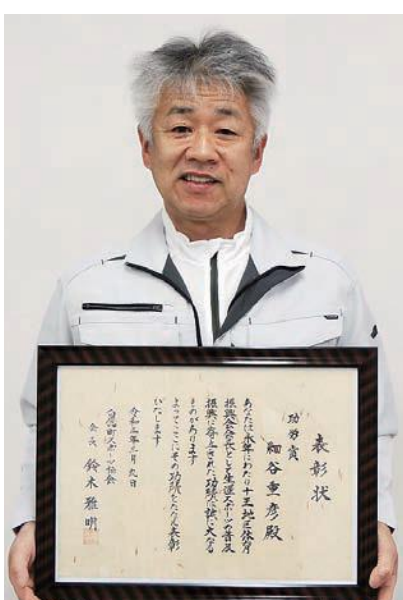 表彰状
功労賞
細谷重彦殿
あなたは永年にわたり十王地区体育
振興会会長として生涯スポーツの普及
振興に寄与された功績は誠に大なる
ものがあります
よってここにその功績をたたえ表彰
いたします
令和三年三月九日
スポーツ協会
会長 鈴木雅明